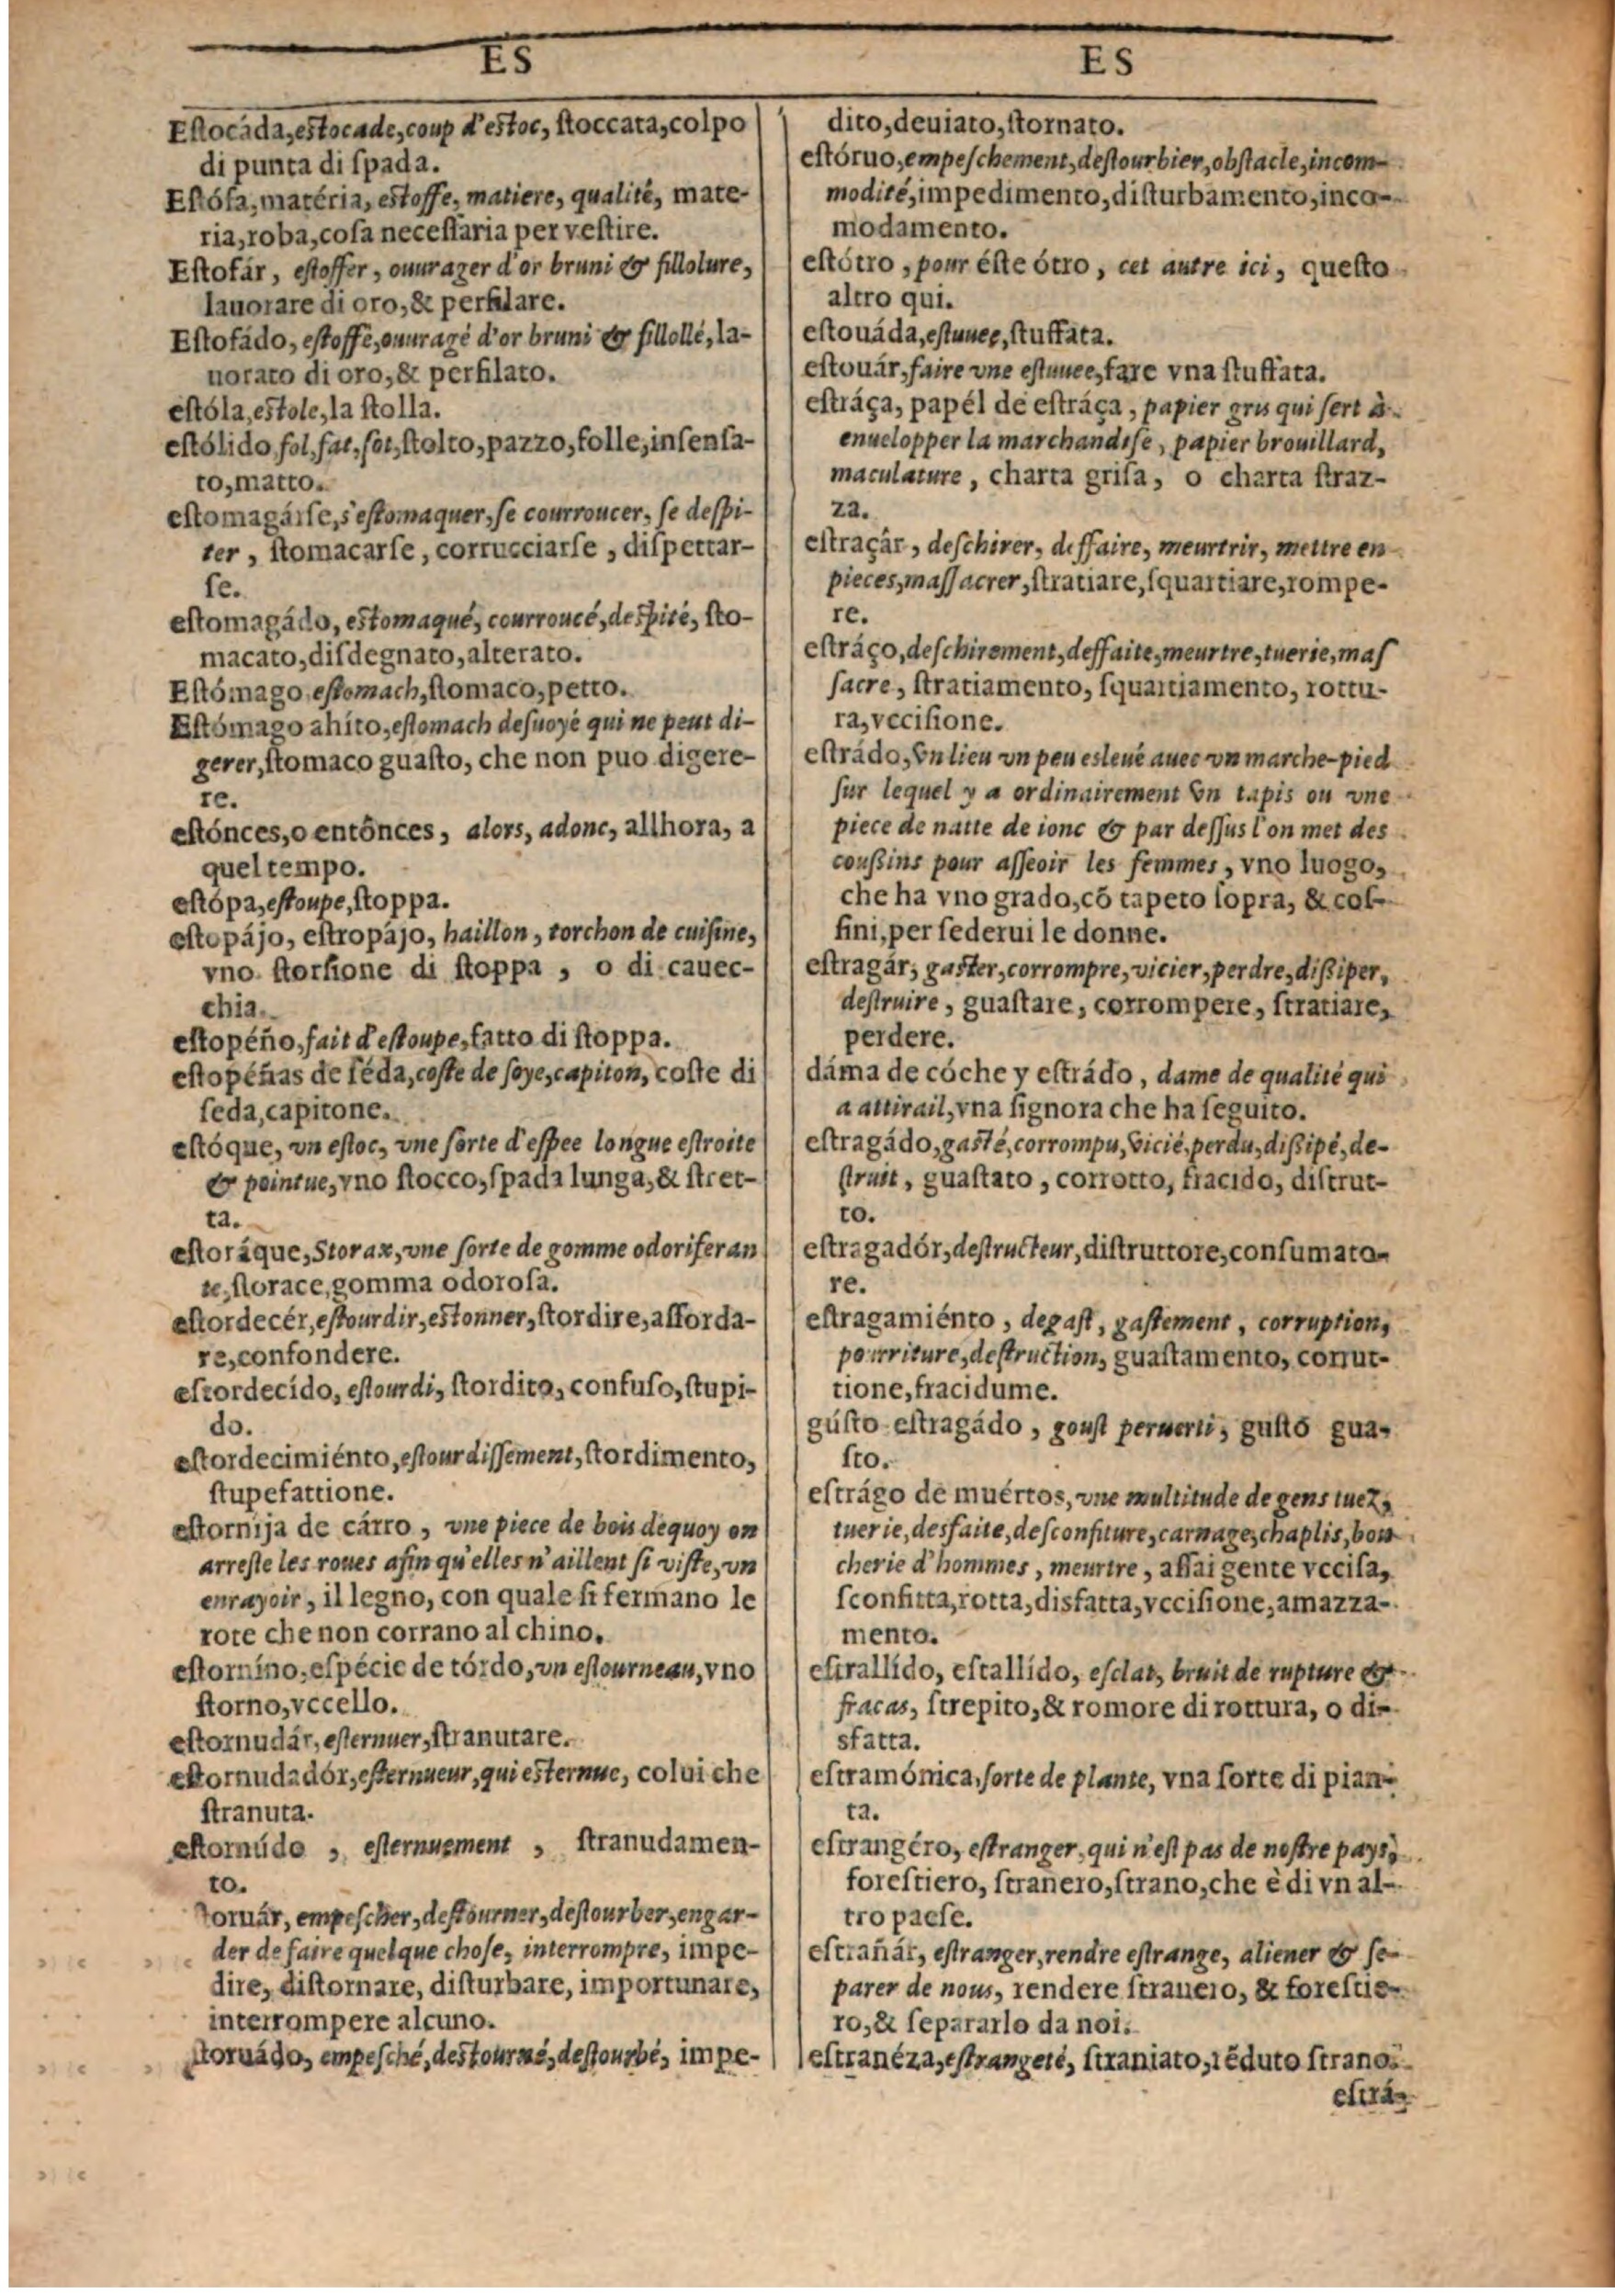 ES
Eſtocáda, eſtocade, coup d'eſtoc, ſtoccata, colpo
di punta di ſpada.
Eſtófa, matéria, eſtoffe, matiere, qualité, mate-
ria, roba, coſa neceſſaria per veſtire.
Eſtofár, eſtoffer, ouurager d'or bruni & filloture,
lauorare di oro, & perfilare.
Eſtofádo, eſtoffé, ouuragé d'or bruni & fillollé, la-
uorato di oro, & perfilato.
eſtóla, eſtole, la ſtolla.
eſtólido, fol, fat, ſot, ſtolto, pazzo, folle, inſenſa-
to, matto.
eſtomagárſe, s'eſtomaquer, ſe courroucer, ſe deſpi-
ter, ſtomacarſe, corrucciarſe, diſpettar-
ſe.
eſtomagádo, eſtomaqué, courroucé, deſpité, ſto-
macato, diſdegnato, alterato.
Eſtómago, eſtomach, ſtomaco, petto.
Eſtómago ahíto, eſtomach deſuoyé qui ne peut di-
gerer, ſtomaco guaſto, che non puo digere-
re.
eſtónces, o entónces, alors, adonc, allhora, a
quel tempo.
eſtópa, eſtoupe, ſtoppa.
eſtopájo, eſtropájo, haillon, torchon de cuiſine,
vno ſtorſione di ſtoppa, o di cauec-
chia.
eſtopéño, fait d'eſtoupe, fatto di ſtoppa.
eſtopéñas de ſéda, coſte de ſoye, capiton, coſte di
ſeda, capitone.
eſtóque, vn eſtoc, vne ſorte d'eſpee longue eſtroite
& pointue, vno ſtocco, ſpada lunga, & ſtret-
ta.
eſtoráque, Storax, vne ſorte de gomme odoriferan
te, ſtorace, gomma odoroſa.
eſtordecér, eſtourdir, eſtonner, ſtordire, aſſorda-
re, confondere.
eſtordecído, eſtourdi, ſtordito, confuſo, ſtupi-
do.
eſtordecimiénto, eſtourdiſſement, ſtordimento,
ſtupefattione.
eſtornija de cárro, vne piece de bois dequoy on
arreſte les roues afin qu'elles n'aillent ſi viſte, vn
enrayoir, il legno, con quale ſi fermano le
rote che non corrano al chino.
eſtorníno, eſpécie de tórdo, vn eſtourneau, vno
ſtorno, vccello.
eſtornudár, eſternuer, ſtranutare.
eſtornudadór, eſternueur, qui eſternue, colui che
ſtranuta.
eſtornúdo, eſternuement, ſtranudamen-
to.
toruár, empeſcher, deſtourner, deſtourber, engar-
der de faire quelque choſe, interrompre, impe-
dire, diſtornare, diſturbare, importunare,
interrompere alcuno.
ſtoruádo, empeſché, deſtourné, deſtourbé, impe-
ES
dito, deuiato, ſtornato.
eſtóruo, empeſchement, deſtourbier, obſtacle, incom-
modité, impedimento, diſturbamento, inco-
modamento.
eſtótro, pour éſte ótro, cet autre ici, queſto
altro qui.
eſtouáda, eſtuuee, ſtuffata.
eſtouár, faire vne eſtuuee, fare vna ſtuffata.
eſtráça, papél de eſtráça, papier gris qui ſert à
enuelopper la marchandiſe, papier brouillard,
maculature, charta griſa, o charta ſtraz-
za.
eſtraçár, deſchirer, deffaire, meurtrir, mettre en
pieces, maſſacrer, ſtratiare, ſquartiare, rompe-
re.
eſtráço, deſchirement, deffaite, meurtre, tuerie, maſ
ſacre, ſtratiamento, ſquartiamento, rottu-
ra, vcciſione.
eſtrádo, vn lieu vn peu esleué auec vn marche-pied
ſur lequel y a ordinairement vn tapis ou vne
piece de natte de ionc & par deſſus l'on met des
couſſins pour aſſeoir les femmes, vno luogo,
che ha vno grado, cõ tapeto ſopra, & coſ-
ſini, per ſederui le donne.
eſtragár, gaſter, corrompre, vicier, perdre, diſſiper,
deſtruire, guaſtare, corrompere, ſtratiare,
perdere.
dáma de cóche y eſtrádo, dame de qualité qui
a attirail, vna ſignora che ha ſeguito.
eſtragádo, gaſté, corrompu, vicié, perdu, diſſipé, de-
ſtruit, guaſtato, corrotto, fracido, diſtrut-
to.
eſtragadór, deſtructeur, diſtruttore, conſumato-
re.
eſtragamiénto, degaſt, gaſtement, corruption,
pourriture, deſtruction, guaſtamento, corrut-
tione, fracidume.
gúſto eſtragádo, gouſt peruerti, guſto gua-
ſto.
eſtrágo de muértos, vne multitude de gens tuez,
tuerie, desfaite, deſconfiture, carnage, chaplis, bou
cherie d'hommes, meurtre, aſſai gente vcciſa,
ſconfitta, rotta, disfatta, vcciſione, amazza-
mento.
eſtrallído, eſtallído, eſclat, bruit de rupture &
fracas, ſtrepito, & romore di rottura, o di-
sfatta.
eſtramónica, ſorte de plante, vna ſorte di pian-
ta.
eſtrangéro, eſtranger, qui n'eſt pas de noſtre pays,
foreſtiero, ſtranero, ſtrano, che è di vn al-
tro paeſe.
eſtrañár, eſtranger, rendre eſtrange, aliener & ſe-
parer de nous, rendere ſtrauero, & foreſtie-
ro, & ſepararlo da noi.
eſtranéza, eſtrangeté, ſtraniato, rẽduto ſtrano.
eſtrá-